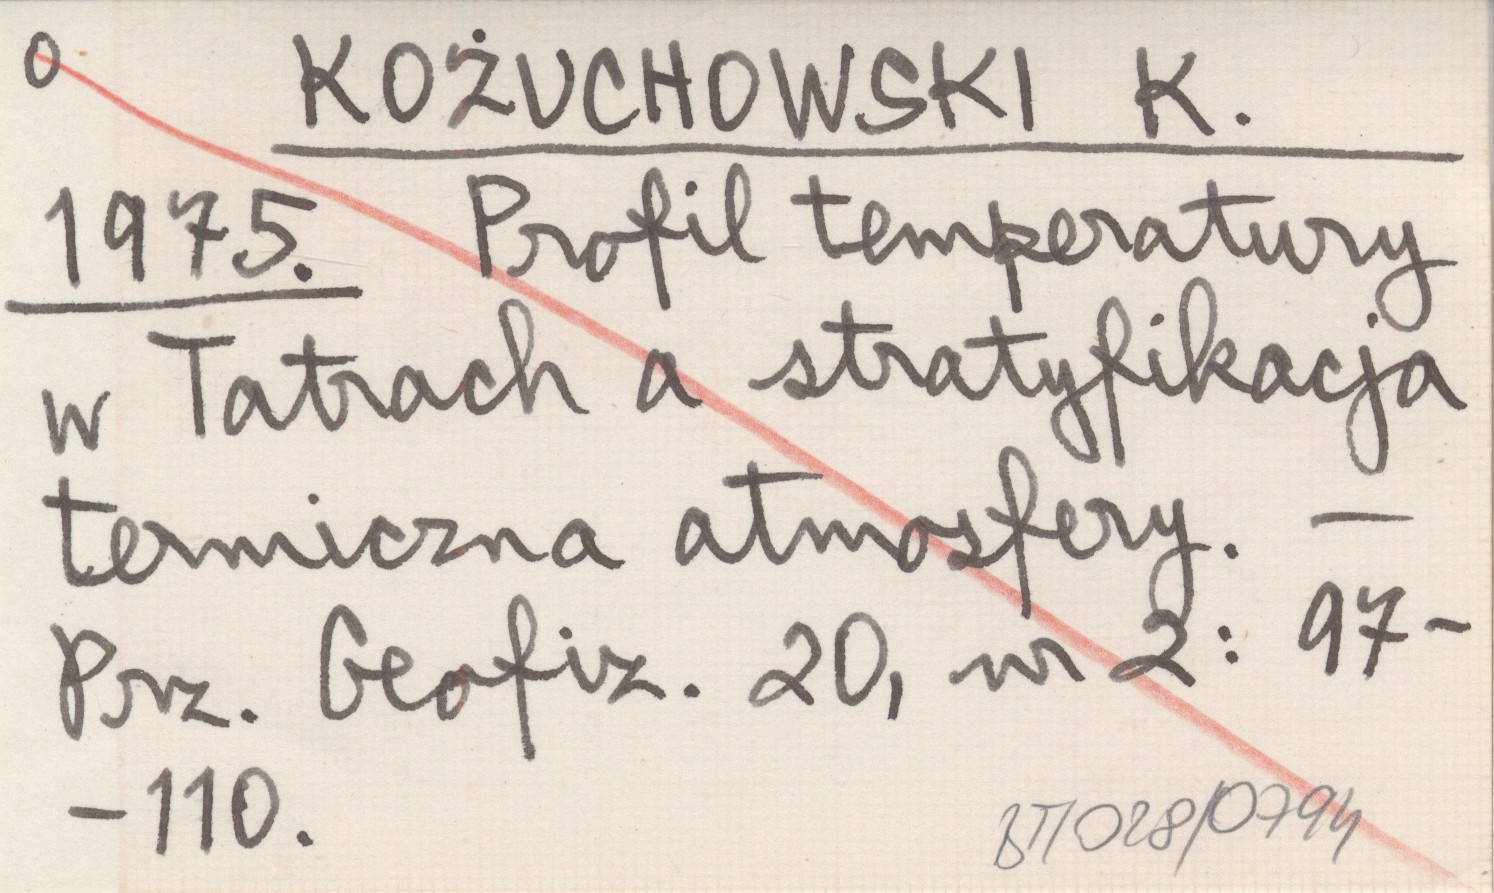 O KOŻUCHOWSKI K.
1975. Profil temperatury
w Tatrach a stratyfikacja
termiczna atmosfery. —
Prz. Geofiz. 20, nr 2: 97-
-110.
BT/028/0794